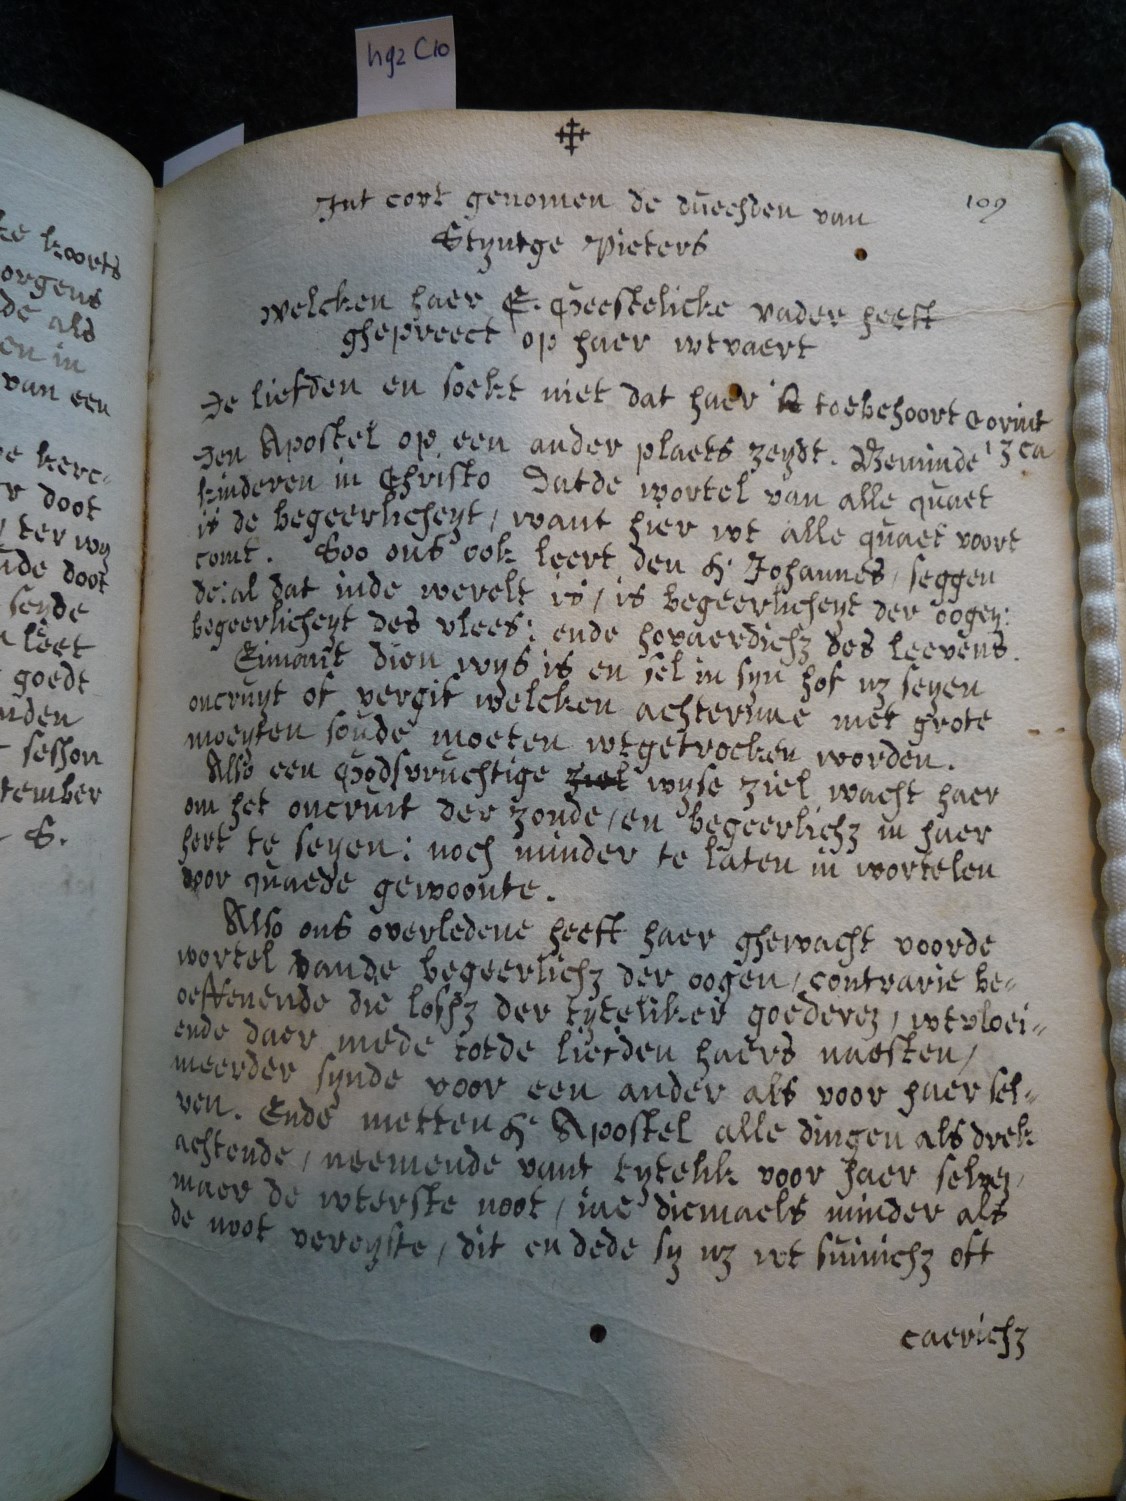 hg2 C10
109
Int cort genomen de duechden van
Styntge Pieters
welcken haer E. Geestelicke vader heeft
ghepreect op haer wtvaert
De liefden en soekt niet dat haer is toebehoort Corint
13 ca
Den Apostel op een ander plaets zeydt. Beminde
kinderen in Christo Datde wortel van alle quaet
is de begeerlicheyt / want hier wt alle quaet voort
comt. Soo ons ook leert den H. Johannes / seggen
de: al dat inde werelt is / is begeerlicheyt der oogen:
begeerlicheyt des vlees: ende hovaerdichz des leevens.
Eimant dien wys is en sel in syn hof nz seyen
oncruyt of vergif welcken achternae met grote
moeyten soude moeten wtgetrocken worden.
Also een Godsvruchtige ziel wyse ziel wacht haer
om het oncruit der zonde / en begeerlichz in haer
hert te seyen: noch minder te laten in wortelen
door quaede gewoonte.
Also ons overledene heeft haer ghewacht voorde
wortel vande begeerlichz der oogen / contrarie be-
oeffenende die losshz der tyteliker goederen / wtvloei-
ende daer mede totde liefden haers naesten /
meerder synde voor een ander als voor haer sel-
ven. Ende metten H. Apostel alle dingen als drek
achtende / neemende vant tytelik voor haer selven /
maer de wterste noot / iae diemaels minder als
de noot vereyste / dit en dede sy nz wt suinichz oft
caerichz
ke koorts
orgens
de als
en in
van een
kerc-
r doot
ter wy
nde doot
seyde
leet
goedt
nden
sesson
tember
S.